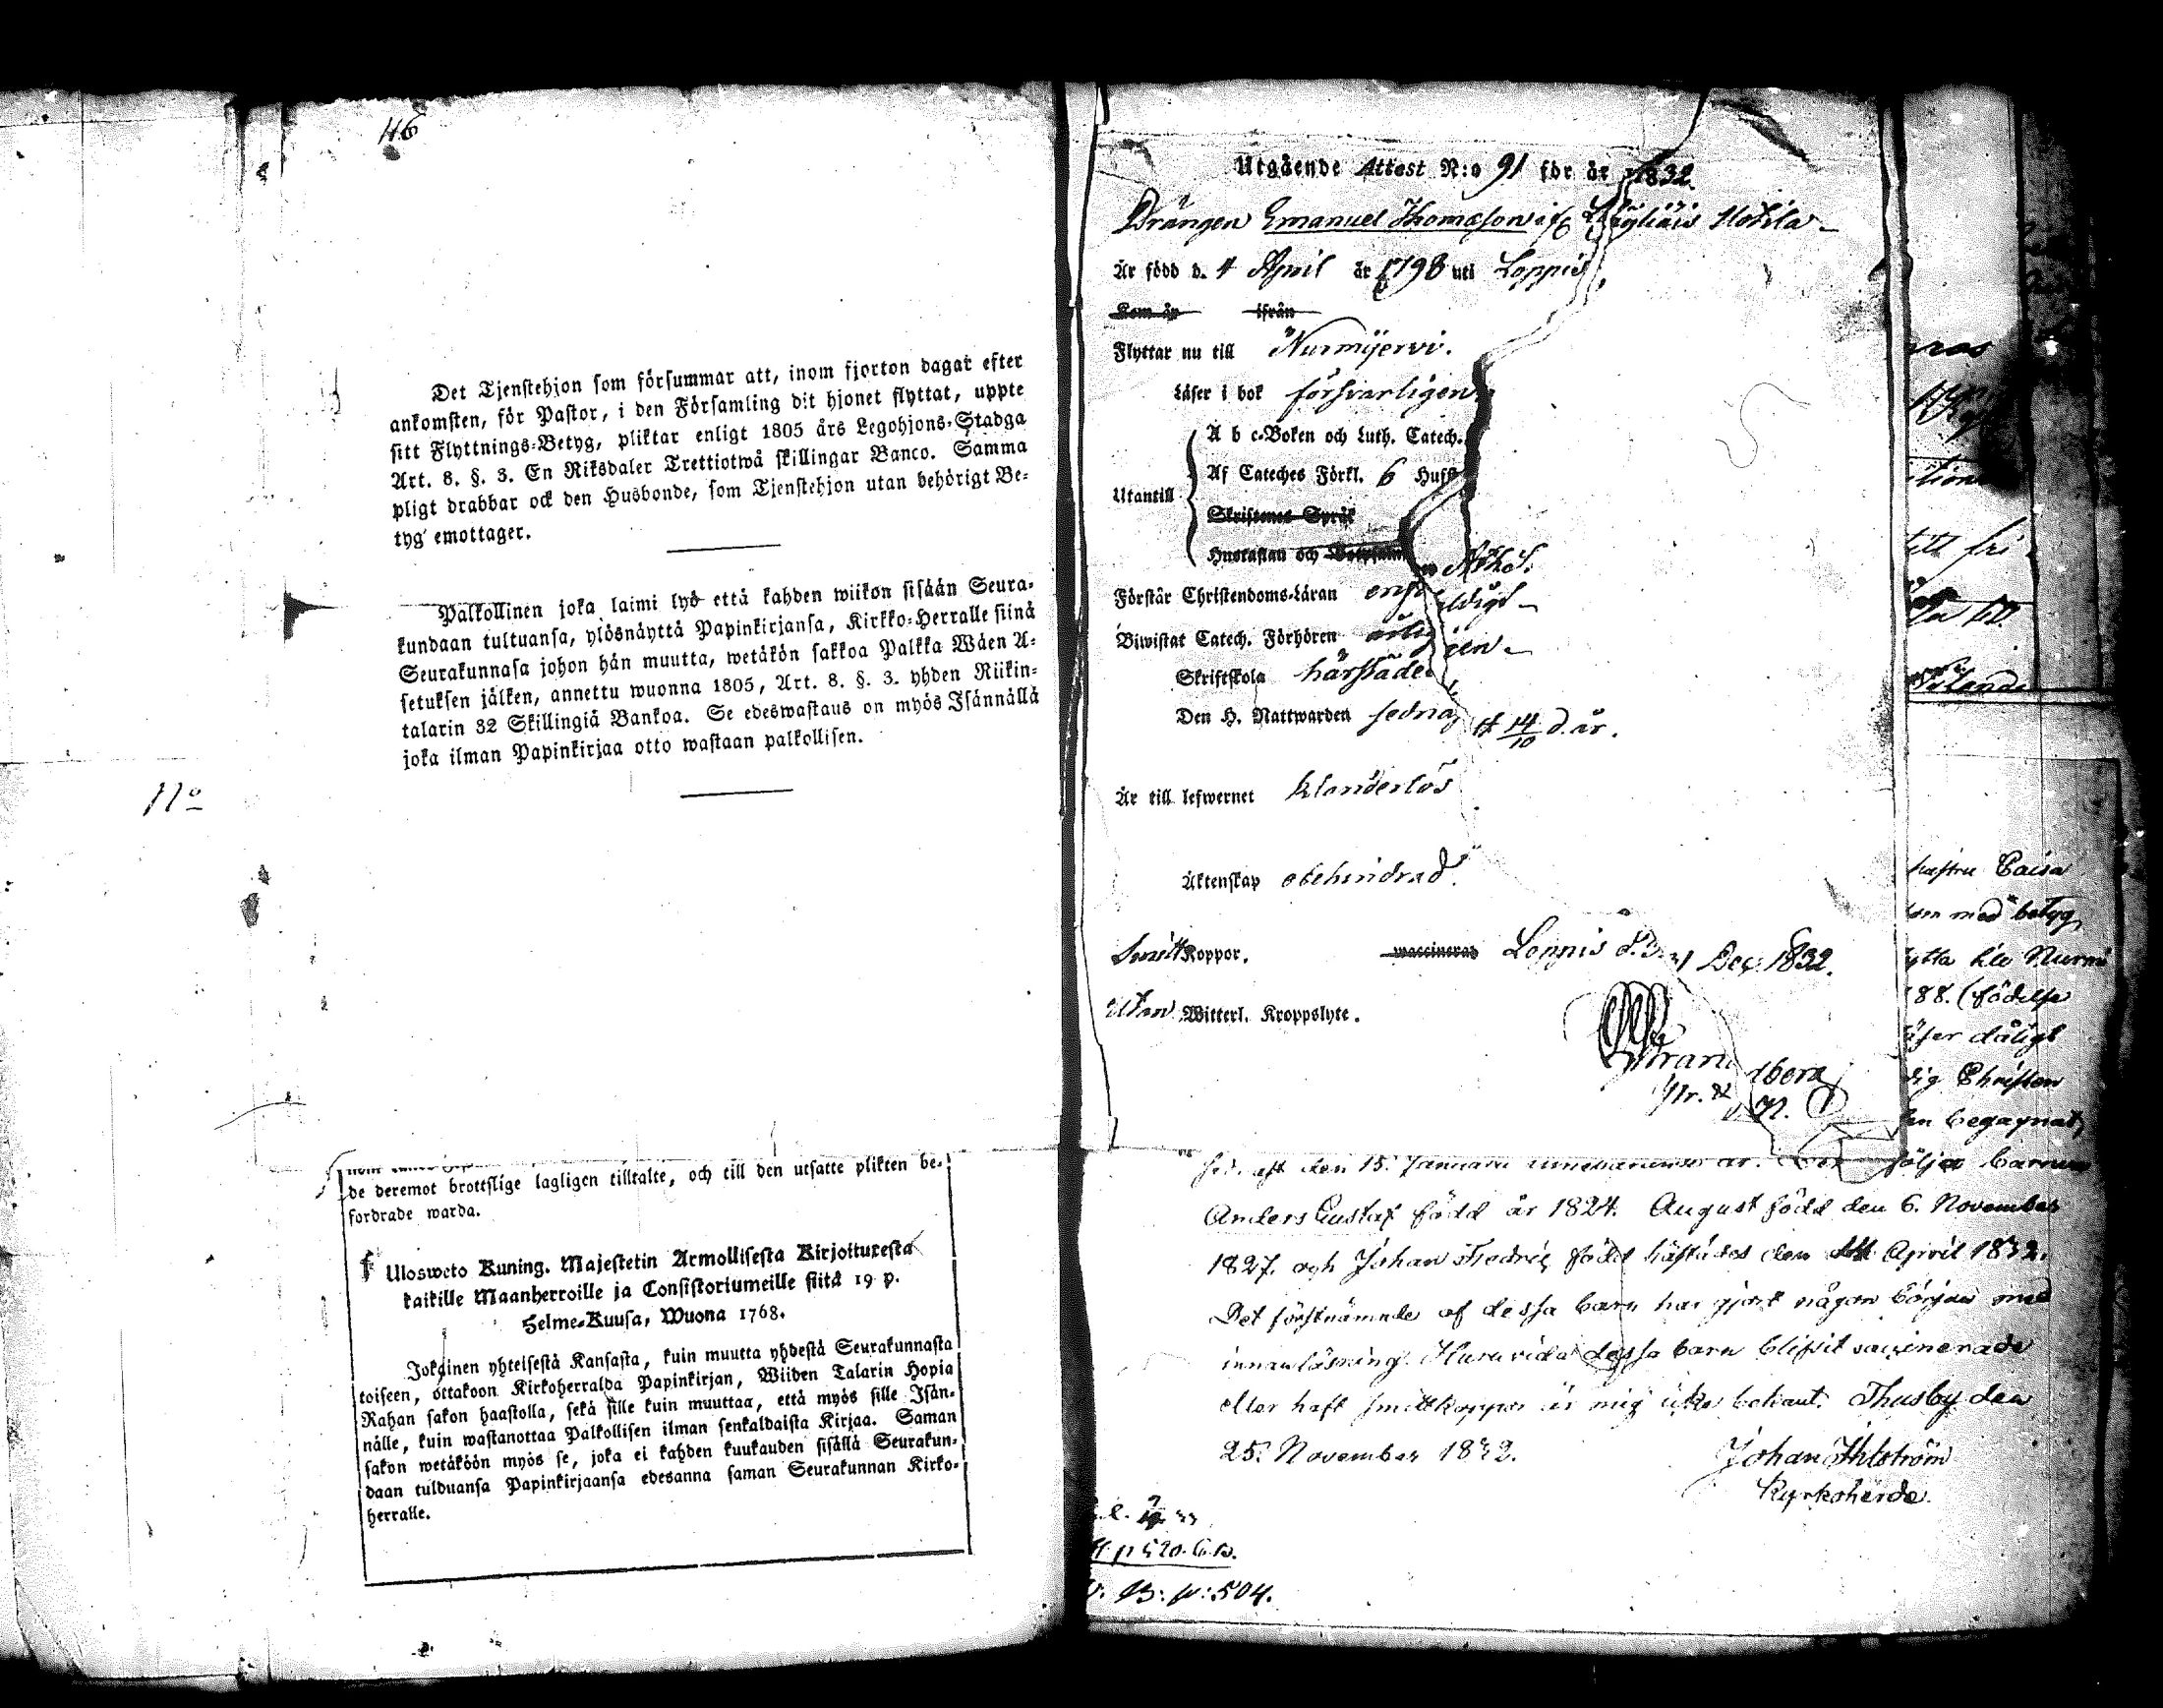 46
Det Tjenstehjon som försummar att, inom fjorton dagar efter
ankomsten, för Pastor, i den Församling dit hjonet flyttat, uppte
sitt Flyttnings-Betyg, pliktar enligt 1805 års Legohjons-Stadga
Art. 8. §. 3. En Riksdaler Trettiotwå skillingar Banco. Samma
pligt drabbar ock den Husbonde, som Tjenstehjon utan behörigt Be-
tyg emottager.
Palkollinen joka laimi lyö että kahden wiikon sisään Seura-
kundaan tultuansa, ylösnäyttä Papinkirjansa, Kirkko-Herralle siinä
Seurakunnasa johon hän muutta, wetäkön sakkoa Palkka Wäen A-
setuksen jälken, annettu wuonna 1805, Art. 8. §. 3. yhden Riikin-
talarin 32 Skillingiä Bankoa. Se edeswastaus on myös Isännällä
joka ilman Papinkirjaa otto wastaan palkollisen.
11o
de deremot brottslige lagligen tilltalte, och till den utsatte plikten be-
fordrade warda.
Ulosweto Kuning. Majestetin Armollisesta Kirjoituxesta
kaikille Maanherroille ja Consistoriumeille siitä 19 p.
Helme-Kuusa, Wuona 1768.
Jokainen yhteisestä Kansasta, kuin muutta yhdestä Seurakunnasta
toiseen, ottakoon Kirkoherralda Papinkirjan, Wiiden Talarin Hopia
Rahan sakon haastolla, sekä sille kuin muuttaa, että myös sille Isän-
nälle, kuin wastanottaa Palkollisen ilman senkaldaista Kirjaa. Saman
sakon wetäköön myös se, joka ei kahden kuukauden sisällä Seurakun-
daan tulduansa Papinkirjaansa edesanna saman Seurakunnan Kirko-
herralle.
Utgående Attest N:o 91 för år 1832.
Drängen Emanuel Thomasson
Är född d. 4 April år 1798 uti Loppis
Kom år ifrån
Flyttar nu till Nurmijervi.
Läser i bok försvarligen
Utantill
A b c-Boken och Luth. Catech.
Af Cateches Förkl. 6 Hufst
Skriftenes Språk
Hustaflan och
Förstår Christendoms-Läran
Biwistat Catech. Förhören årligen
Skriftskola härstädes
Den H. Nattwarden sedna 14/10 d. år.
Är till lefwernet klanderlös
Äktenskap obehindrad.
Smitt Koppor. waccinerad Loppis d. 31 Dec. 1832.
Utan Witterl. Kroppslyte.
Strandberg
Caisa
med betyg
ytta till Nurmi
88. (födelse
läser dåligt
dig Christen
begagnat,
den 15. Januarii innevarande år. följa barnen
Anders Gustaf född år 1824. August född den 6. November
1827. och Johan Fredric född härstädes den April 1832.
Det förstnämnde af dessa barn har gjort någon början med
innanläsning. Huruvida dessa barn blifvit vaccinerade
eller haft smittkoppor är mig icke bekant. Thusby den
25. November 1832.
Johan Ahlström
Kyrkoherde.
p. 520.
B. p. 504.